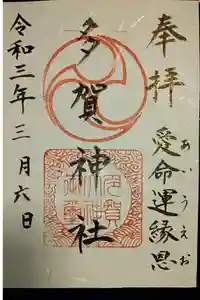 奉拝
愛命運縁恩
あいうえお
多賀神社
令和三年三月六日